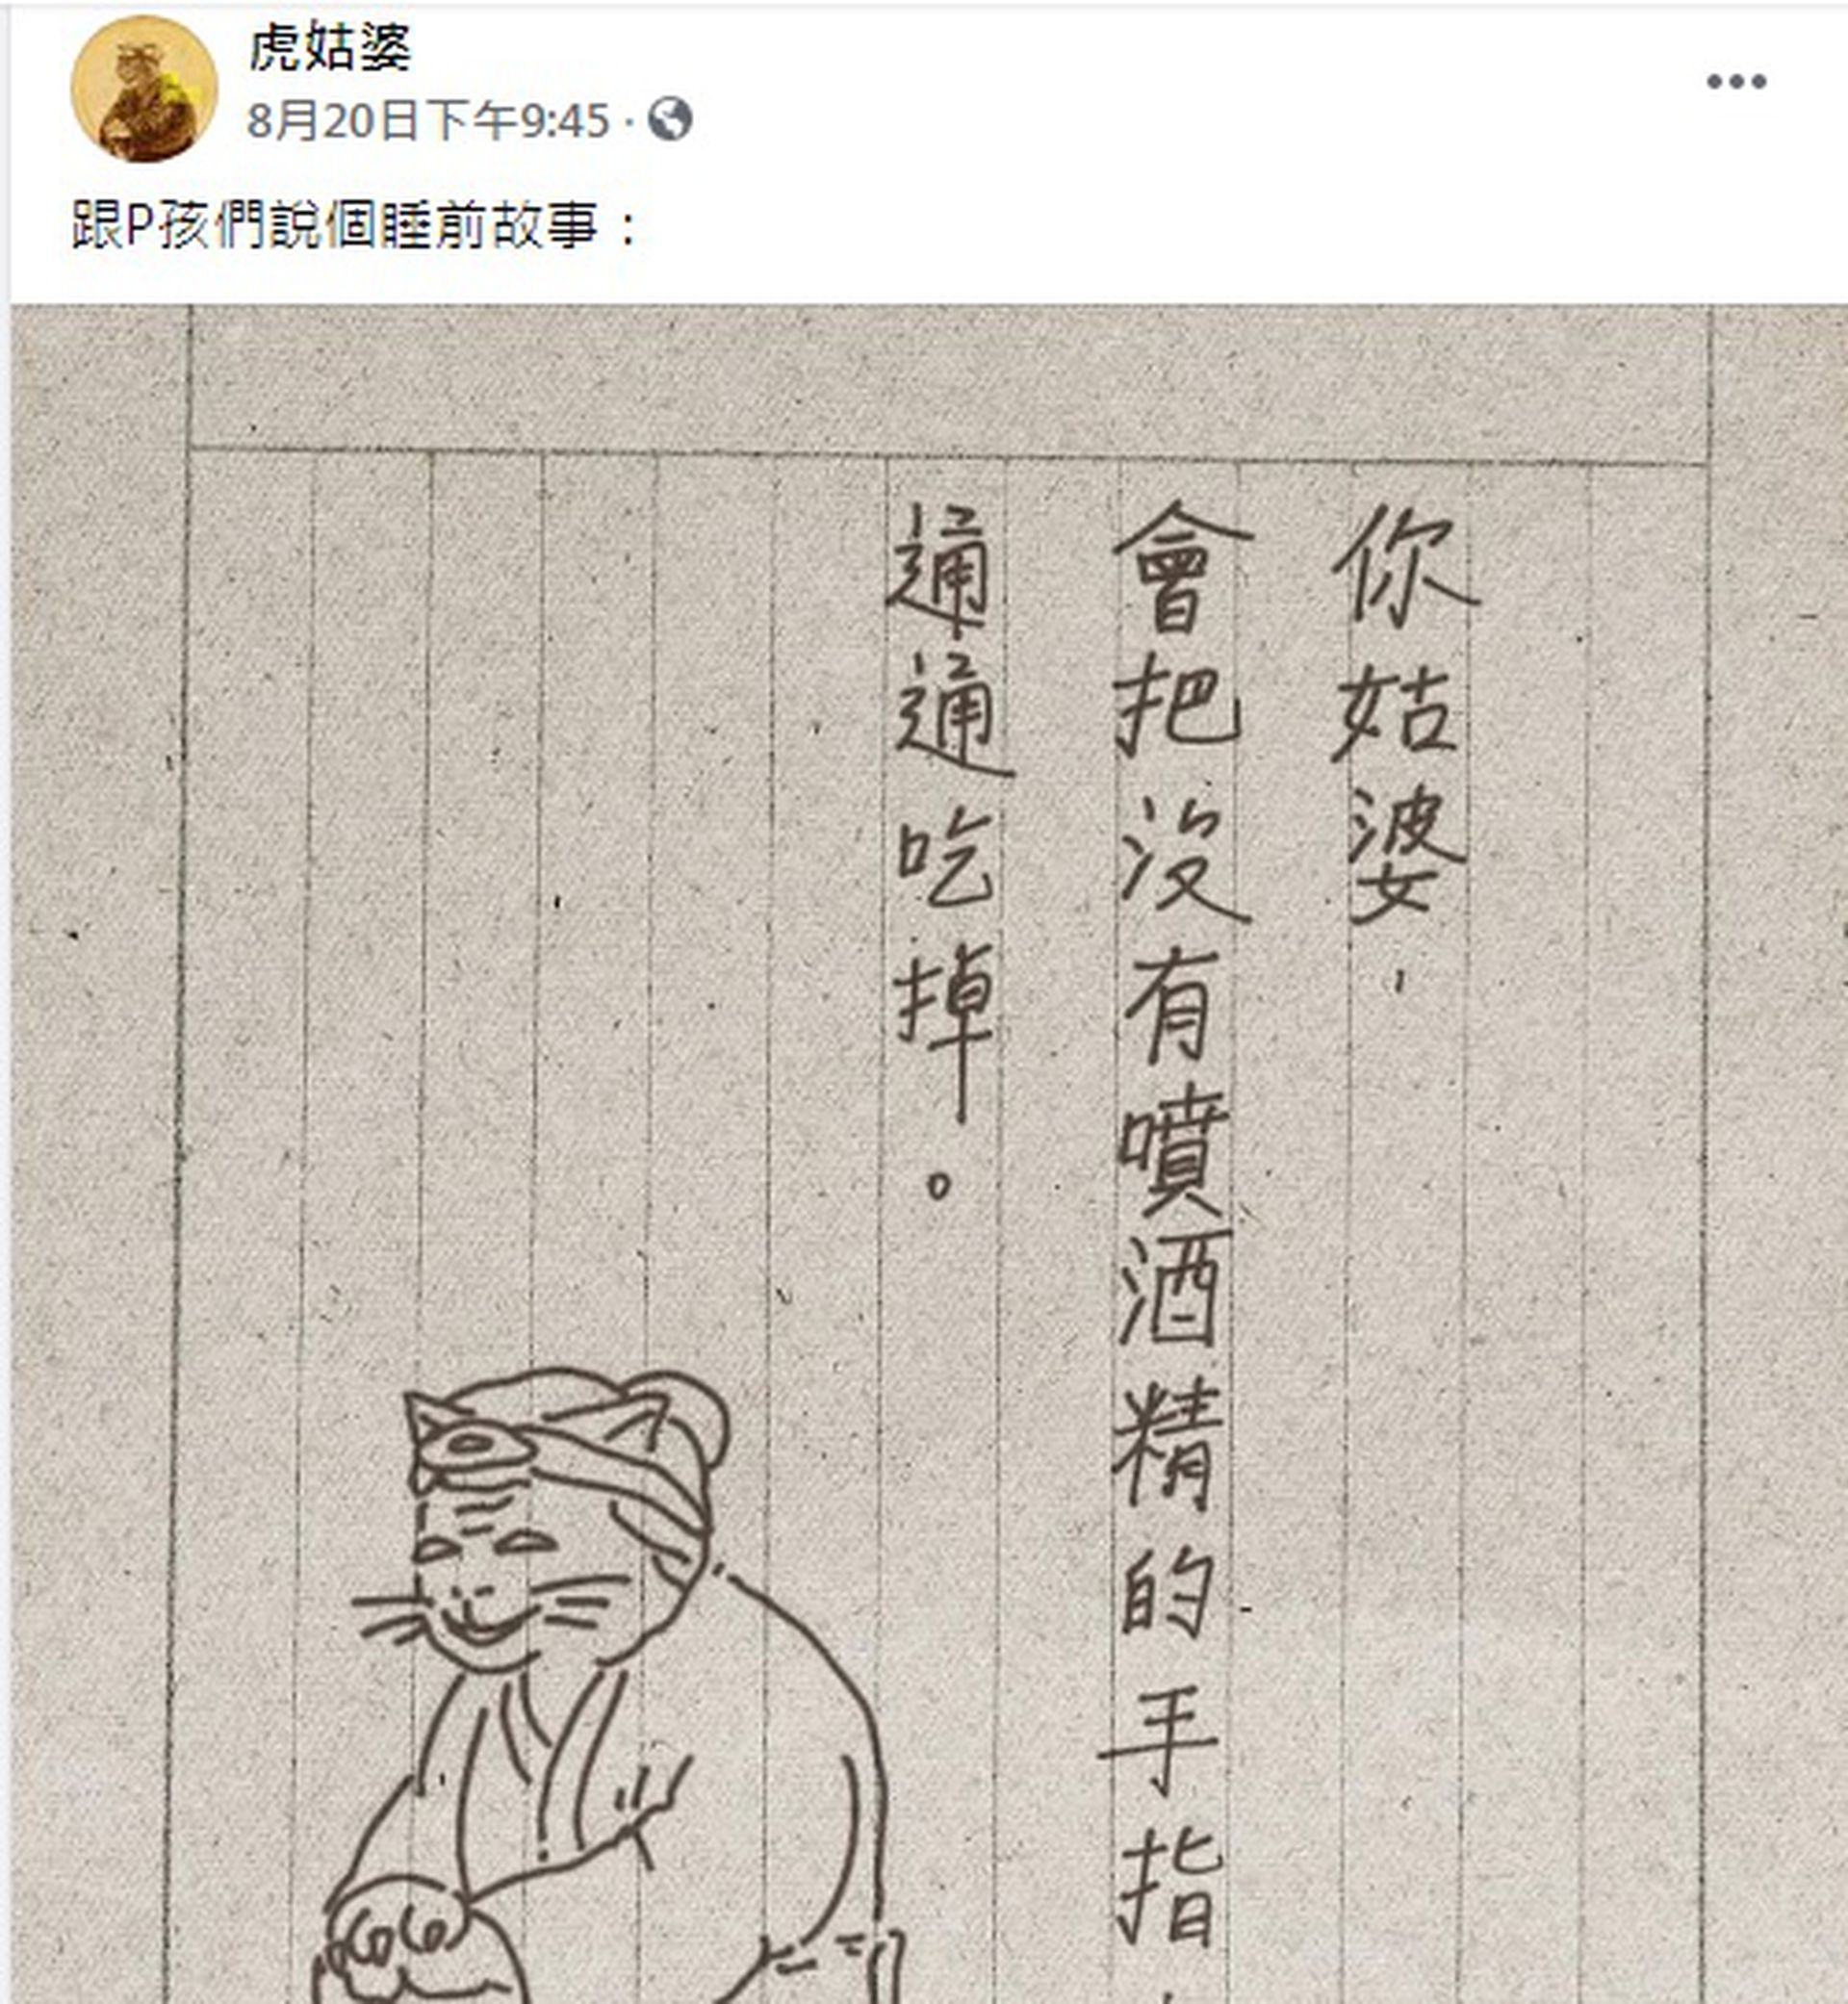 虎姑婆
8月20日下午9:45
跟P孩們說個睡前故事：
你姑婆，
會把沒有噴酒精的手指
通通吃掉。